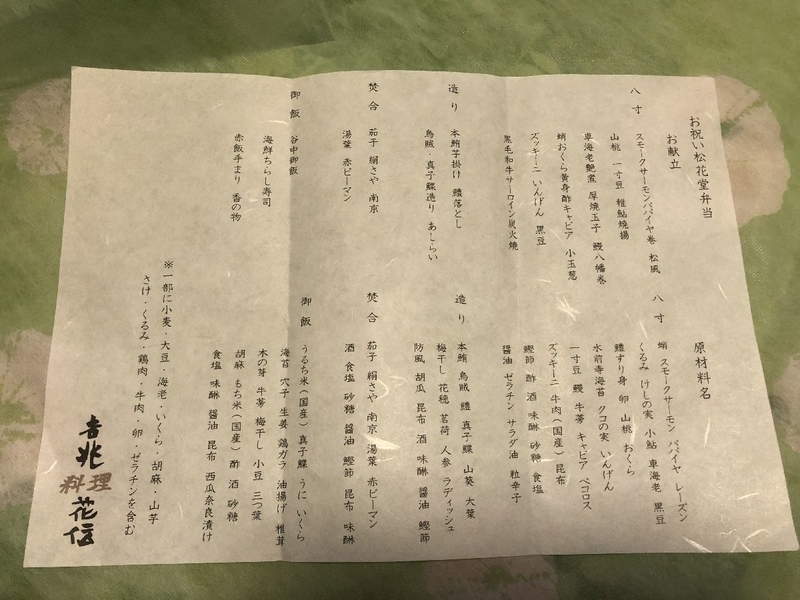 お祝い松花堂弁当
お献立
八寸
スモークサーモンパパイヤ巻 松風
山桃 一寸豆 稚鮎焼揚
車海老艶煮 厚焼玉子 鰻八幡巻
蛸おくら黄身酢キャビア 小玉葱
ズッキーニ いんげん 黒豆
黒毛和牛サーロイン炭火焼
造り
本鮪芋掛け 鱧落とし
烏賊・真子鰈造り あしらい
焚合
茄子 絹さや 南京
湯葉 赤ピーマン
御飯
谷中御飯
海鮮ちらし寿司
赤飯手まり 香の物
原材料名
八寸
蛸 スモークサーモン パパイヤ レーズン
くるみ けしの実 小鮎 車海老 黒豆
鱧すり身 卵 山桃 おくら
水前寺海苔 クコの実 いんげん
一寸豆 鰻 牛蒡 キャビア ペコロス
ズッキーニ 牛肉(国産) 昆布
鰹節 酢 酒 味醂 砂糖 食塩
醤油 ゼラチン サラダ油 粒辛子
造り
本鮪 烏賊 鱧 真子鰈 山葵 大葉
梅干し 花穂 茗荷 人参 ラディッシュ
防風 胡瓜 昆布 酒 味醂 醤油 鰹節
焚合
茄子 絹さや 南京 湯葉 赤ピーマン
酒 食塩 砂糖 醤油 鰹節 昆布 味醂
御飯
うるち米(国産) 真子鰈 うに いくら
海苔 穴子 生姜 鶏ガラ 油揚げ 椎茸
木の芽 牛蒡 梅干し 小豆 三つ葉
胡麻 もち米(国産) 酢 酒 砂糖
食塩 味醂 醤油 昆布 西瓜奈良漬け
※一部に小麦・大豆・海老・いくら・胡麻・山芋
さけ・くるみ・鶏肉・牛肉・卵・ゼラチンを含む
吉兆
料理
花伝